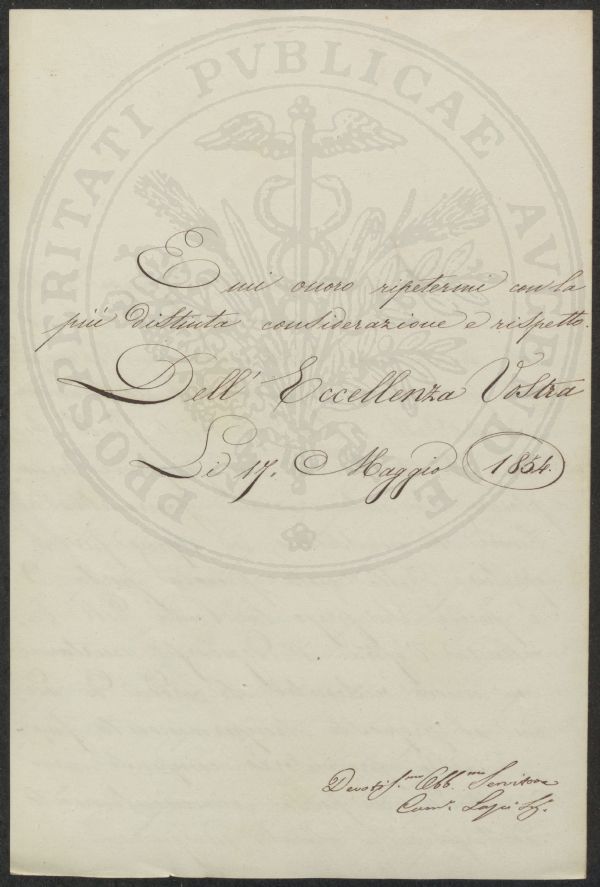 PROSPERITATI PVBLICAE AVGENDAE
E mi onoro ripetermi con la
più distinta considerazione e rispetto.
Dell' Eccellenza Vostra
Li 17. Maggio 1854.
Devotis.mo Obb.mo Servitore